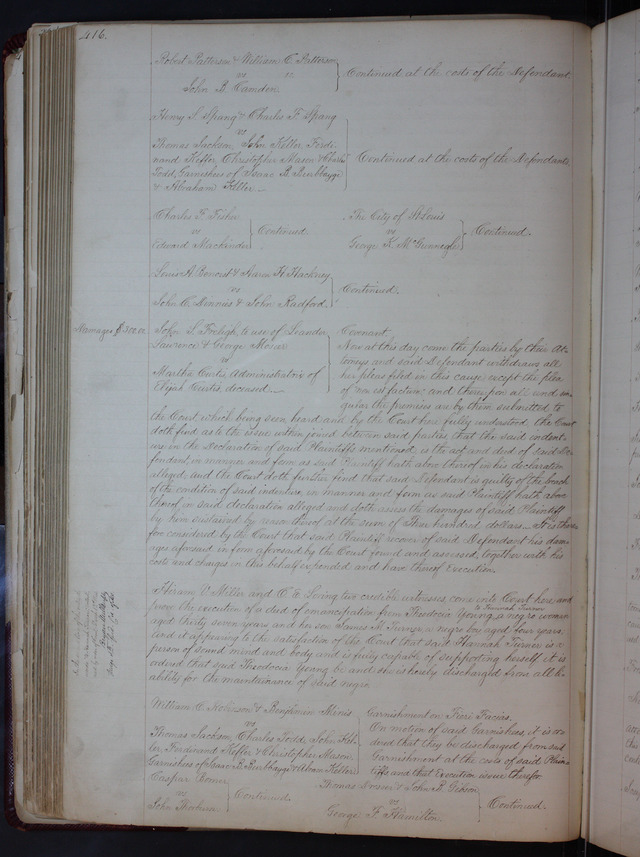 416.
Robert Patterson & William C. Patterson
vs
John B. Camden.
Continued at the costs of the Defendant
Henry S. Spang & Charles F. Spang
vs
Thomas Jackson, John Keller, Ferdi-
nand Keffer, Christopher Mason & Charles
Todd, Garnishees of Isaac B.
& Abraham
Continued at the costs of the Defendants
Charles F. Fisher
vs
Edward Mackinder
Continued
The City of St Louis
vs
George K. McGunnegle
Continued.
& Aaron H. Hackney
vs
John C. Dinnies & John Radford.
Continued.
Damages $300.00
John L. Finligh, to use of Leander
Lawrence & George Mosier
vs
Martha Curtis, Administratrix of
Elijah Curtis, deceased.
Covenant
Now at this day come the parties by their At-
torneys and said Defendant withdraws all
her pleas filed in this cause except the plea
of non est factum and thereupon all and sin-
gular the premises are by them submitted to
the Court, which being seen, heard and by the Court here fully understood, the Court
doth find as to the issue within joined between said parties that the said indent-
ure in the Declaration of said Plaintiffs mentioned, is the act and deed of said De-
fendant, in manner and form as said Plaintiff hath above thereof in his declaration
alleged, and the Court doth further find that said Defendant is guilty of the breach
of the condition of said indenture, in manner and form as said Plaintiff hath above
thereof in said declaration alleged and doth assess the damages of said Plaintiff
by him sustained by reason thereof at the sum of Three hundred dollars. It is there-
fore considered by the Court that said Plaintiff recover of said Defendant his dam-
ages aforesaid in form aforesaid by the Court found and assessed, together with his
costs and charges in this behalf expended and have thereof Execution.
Hiram O. Miller and C. E. Loring two credible witnesses, come into Court here and
prove the execution of a deed of emancipation from Theodocia Young,
to Hannah Turner
a negro woman
aged thirty seven years and her son James M. Turner a negro boy aged four years
And it appearing to the satisfaction of the Court that said Hannah Turner is a
person of sound mind and body and is fully capable of supporting herself it is
ordered that said Theodocia Young be and she is hereby discharged from all li-
ability for the maintenance of said negro.
William C. Dickinson & Benjamin Minis
vs
Thomas Jackson, Charles Todd, John Kel-
ler, Ferdinand Keffer & Christopher Mason
Garnishees of Isaac B.
Garnishment on Fieri Facias.
On motion of said Garnishees, it is or-
dered that they be discharged from said
Garnishment at the costs of said Plain-
tiffs and that Execution issue therefor
Caspar
vs
John Thorburn
Continued
Thomas & John B. Gibson
vs
George F. Hamilton.
Continued.